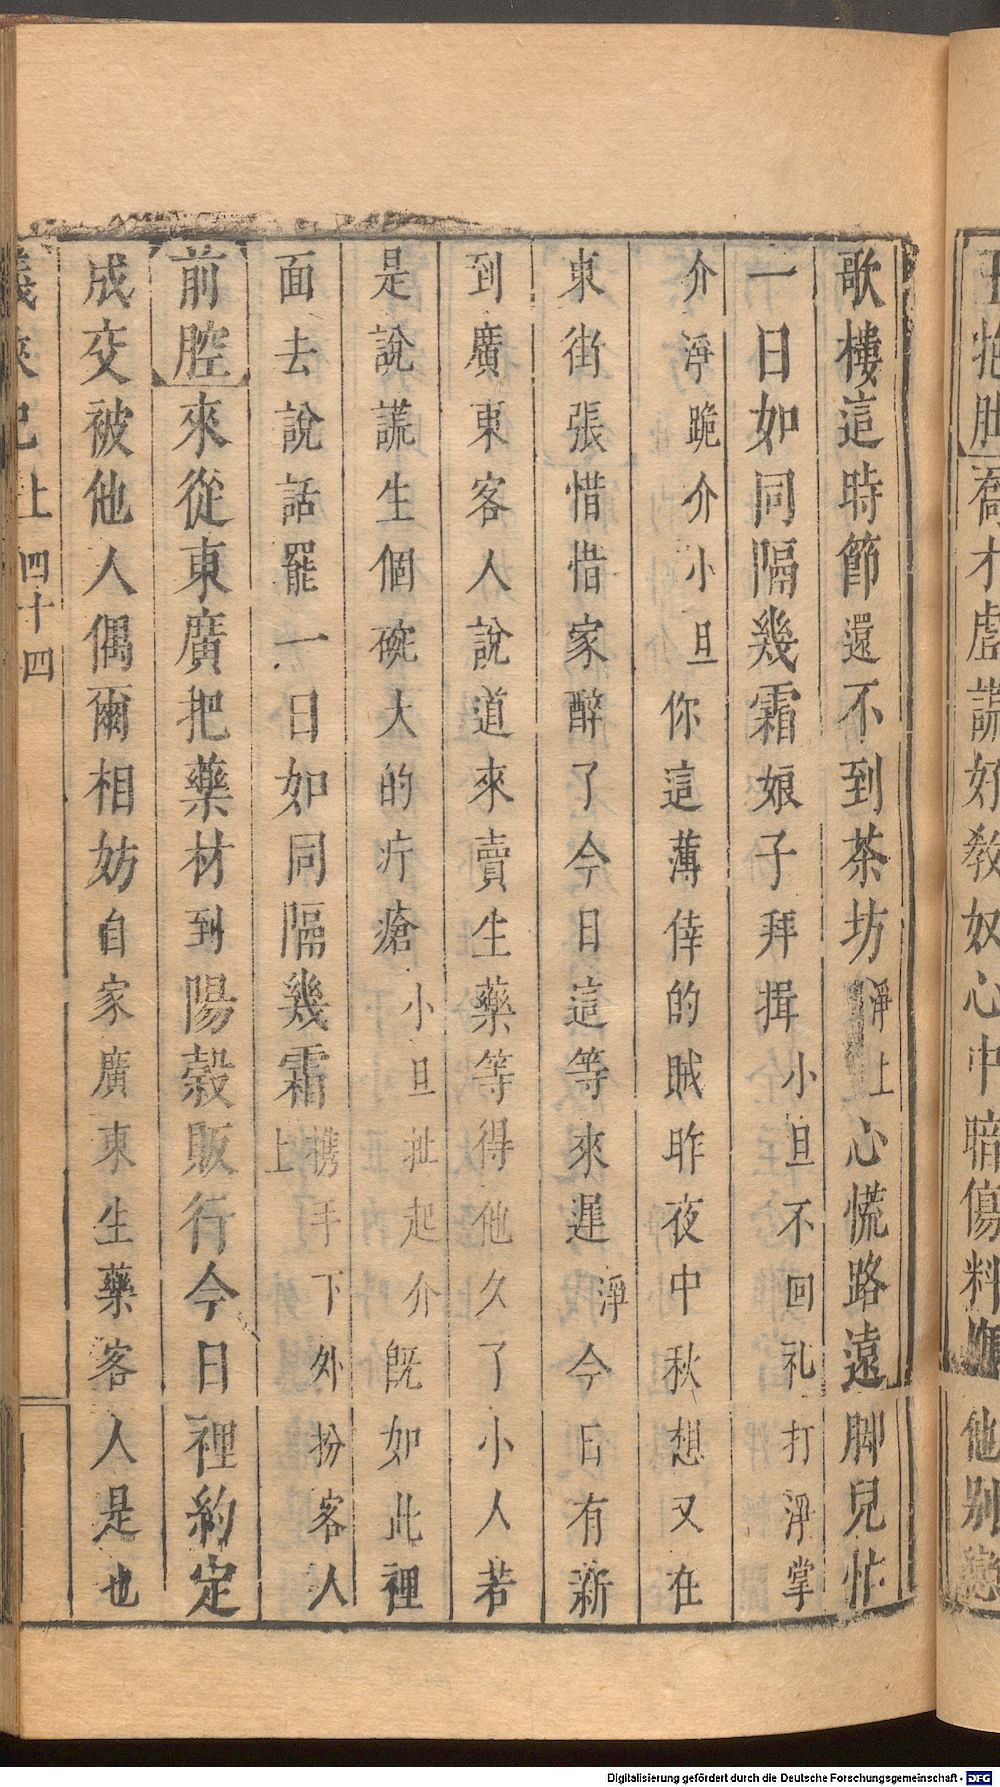 王抱肚喬才虛謊好教奴心中暗傷料應他別戀
歌樓這時節還不到茶坊淨上心慌路遠脚兒忙
一日如同隔幾霜娘子拜揖小旦不回礼打淨掌
介淨跪介小旦你這薄倖的賊昨夜中秋想又在
東街張惜惜家醉了今日這等來遲淨今日有新
到廣東客人說道來賣生藥等得他久了小人若
是說謊生個碗大的疔瘡小旦扯起介既如此裡
面去說話罷一日如同隔幾霜携手下外扮客人上
前腔來從東廣把藥材到陽穀販行今日裡約定
成交被他人偶爾相妨自家廣東生藥客人是也
義俠記上 四十四
Digitalisierung gefördert durch die Deutsche Forschungsgemeinschaft - DFG